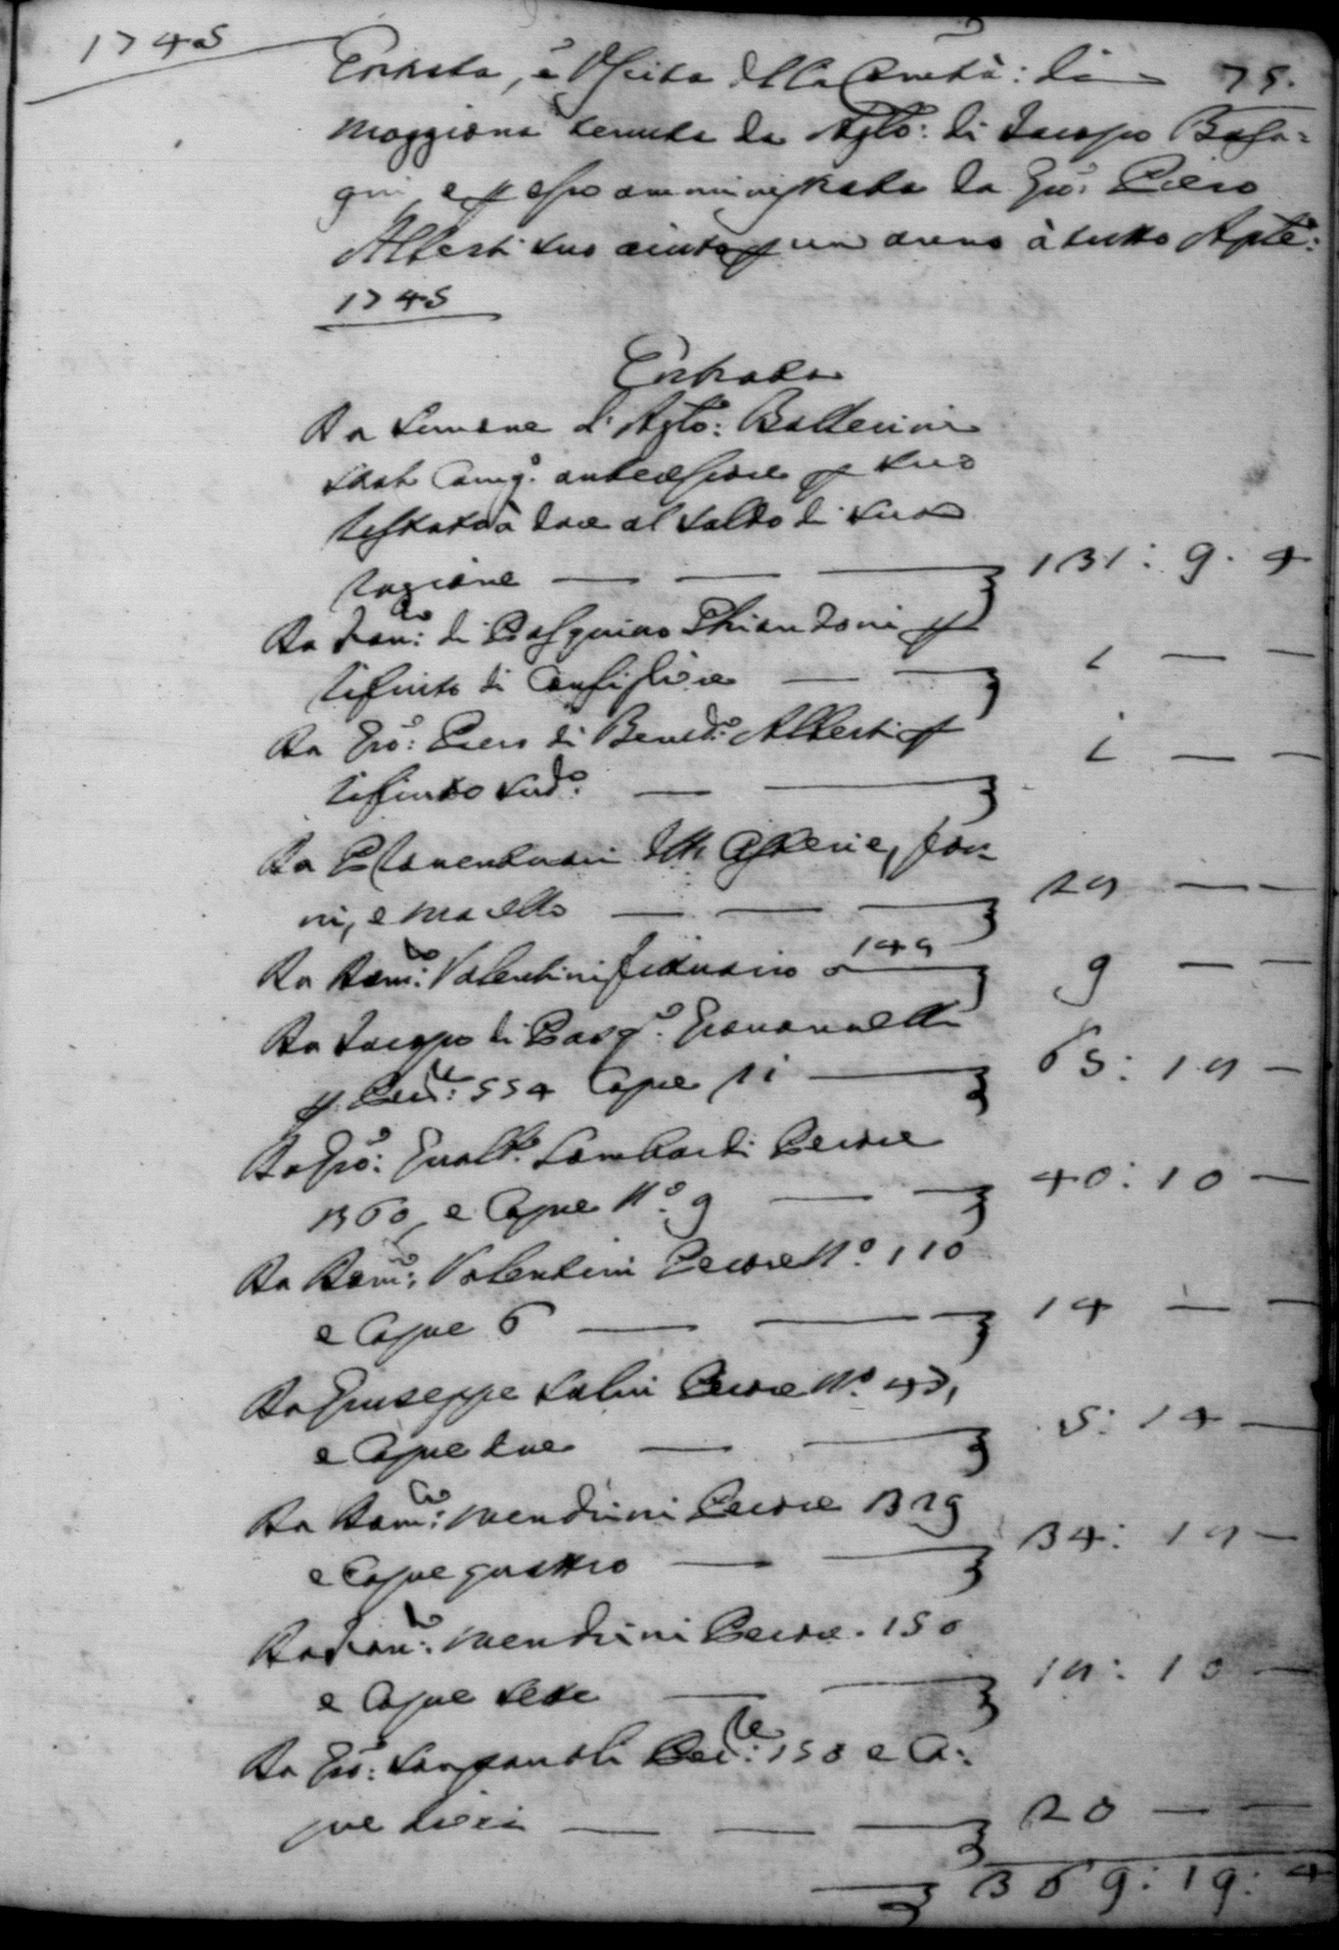 1745
Entrata, e Uscita della Comtà: di 75.
Moggiona tenuta da Agto: di Iacopo Bifa=
gni e p esso amministrata da Gio: Piero
Alberti suo aiuto p un anno à tutto Aple:
1745
Entrata
Da Simone d'Agto: Ballerini
stato Camgo. antecessore p suo
restato à dare al saldo di sua
ragione 131: 9. 4
Da Franco: di Pasquino Ghiandoni p
rifiuto di Consigliere 2 — —
Da Gio: Piero di Bened: Alberti p
rifiuto sudo: 2 — —
Da Proventuari dell Osterie, For=
ni, e Macello 29 — —
Da Domco: Valentini fiduario a 149 9 — —
Da Iacopo di Pasqo: Giovannelli
p Pecre: 554 Capre 21 65: 19 —
Da Gio: Gualbo: Lombardi Pecore
360, e Capre No: 9 40: 10 —
Da Domco: Valentini Pecore No: 110
e Capre 6 14 — —
Da Giuseppe Salvi Pecore No: 47,
e Capre due 5: 14 —
Da Domco: Mendrini Pecore 329
e Capre quattro 34: 19 —
Da Franco: Mendrini Pecore. 150
e Capre sette 19: 10 —
Da Gio: Pecre: 150 e Ca:
pre dieci 20 — —
369: 19: 4